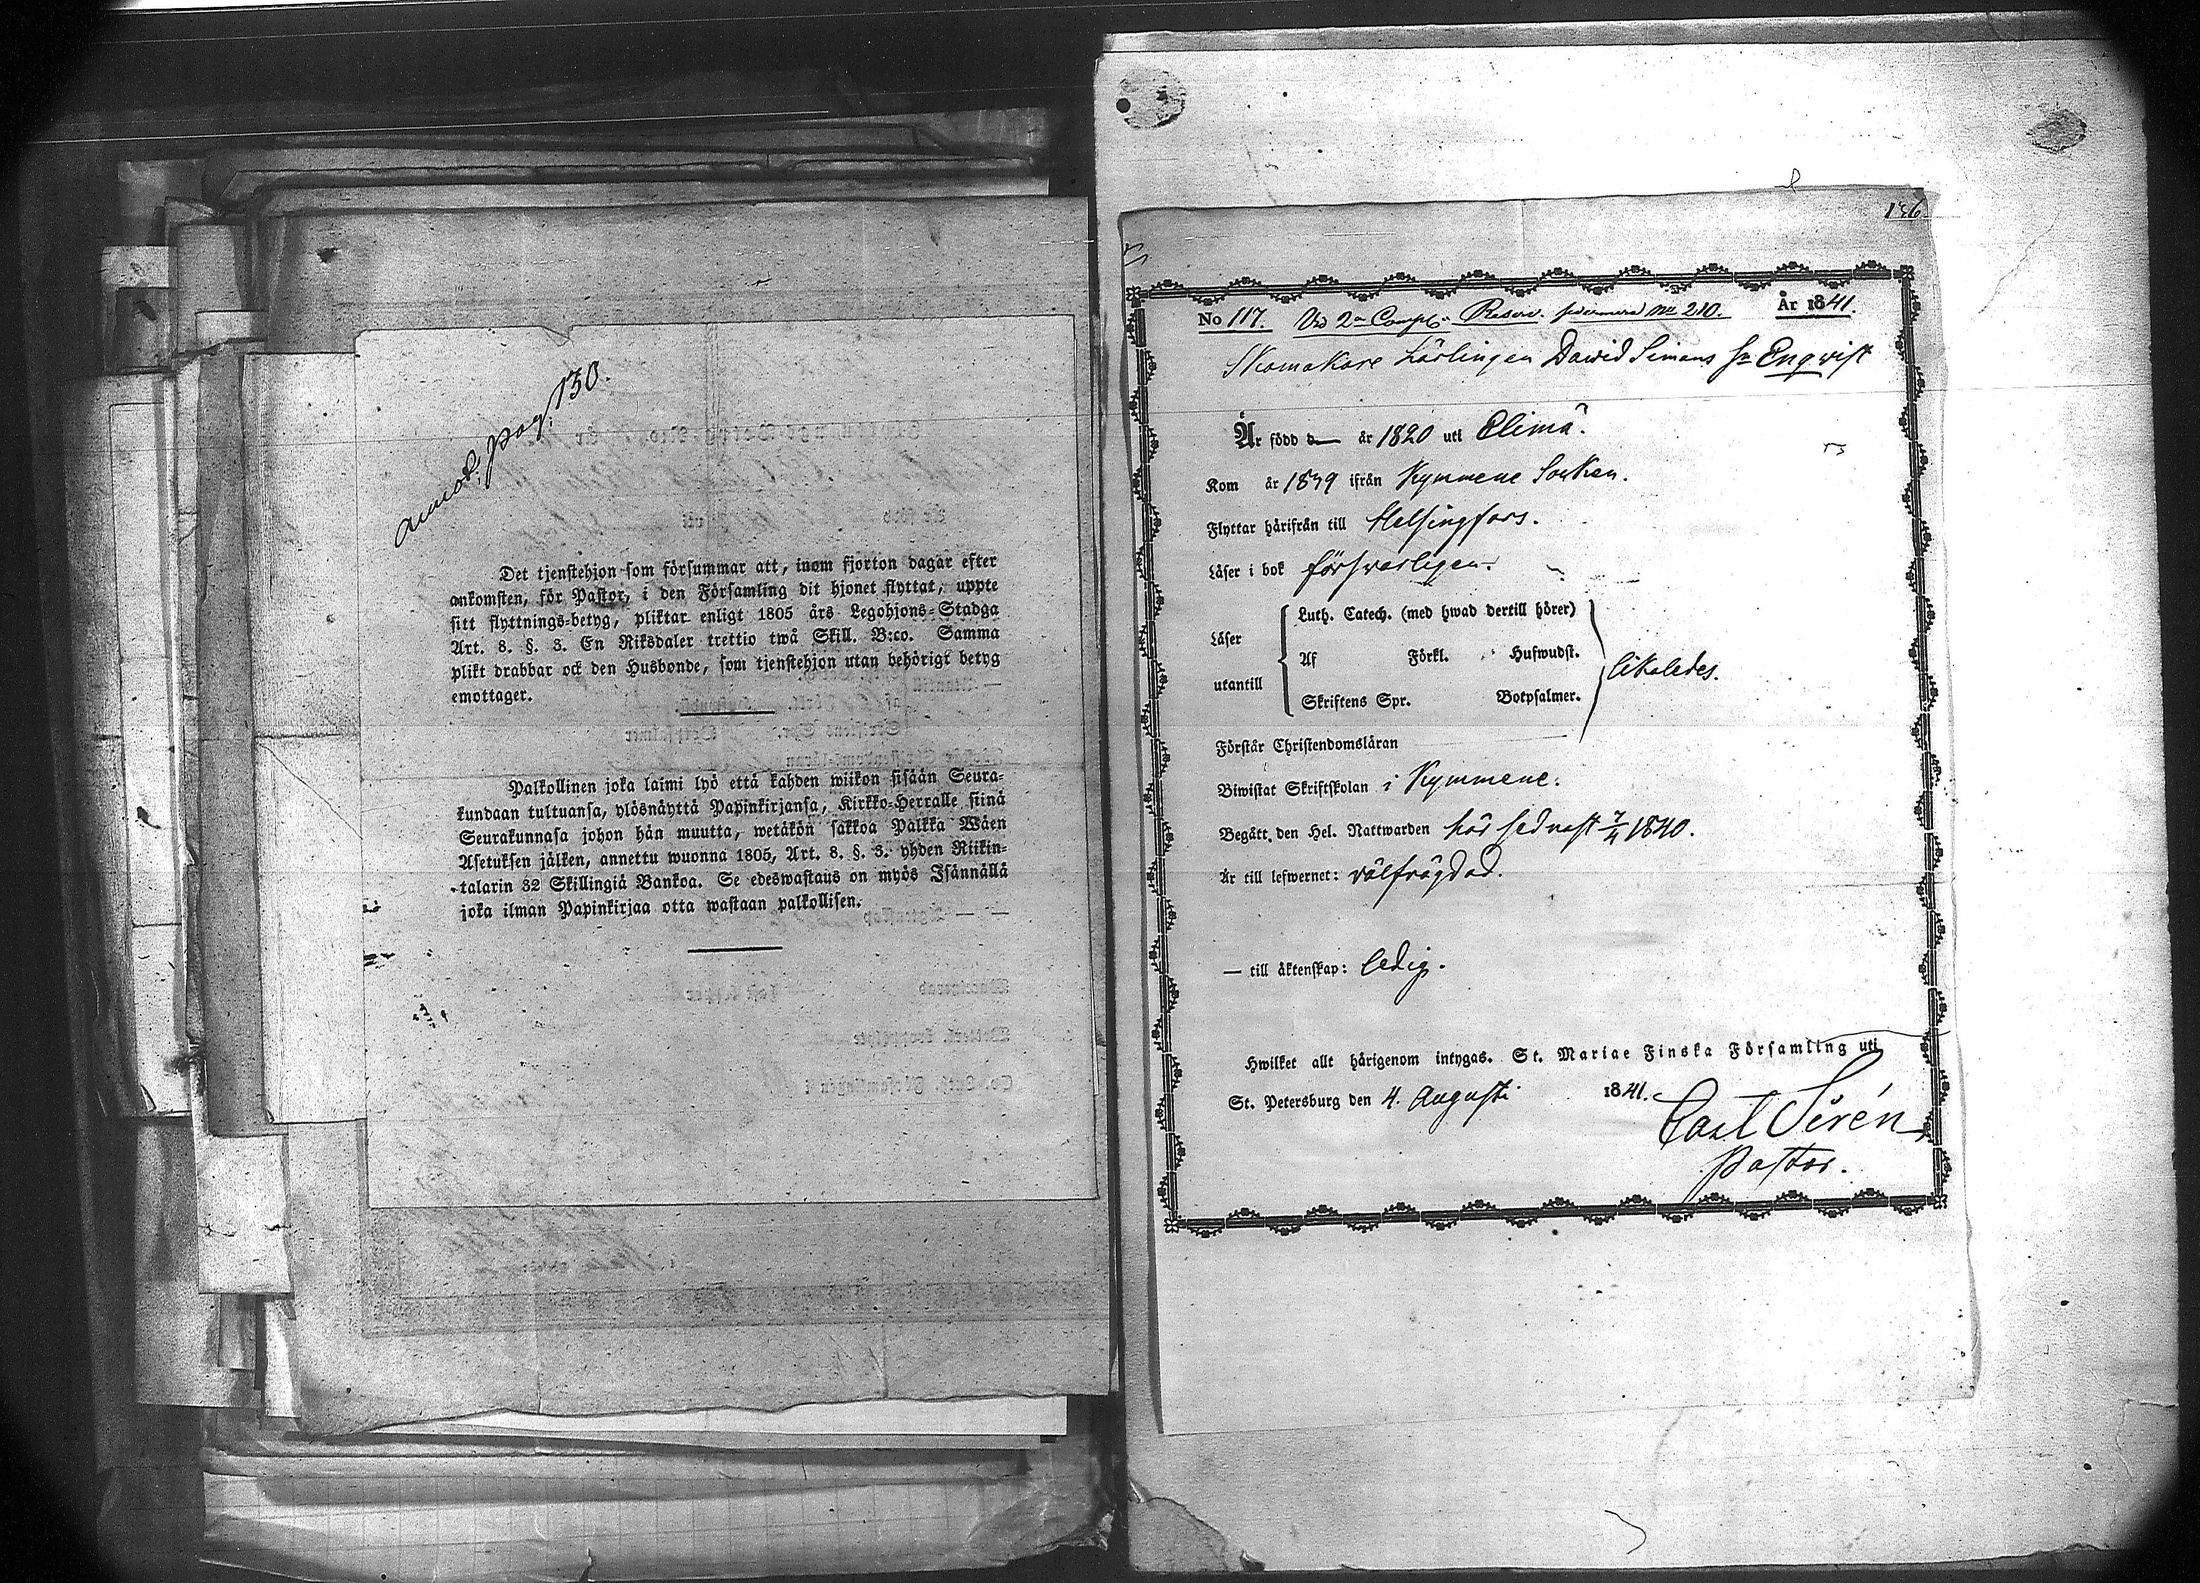 annot. pag. 130.
Det tjenstehjon som försummar att, inom fjorton dagar efter
ankomsten, för Pastor, i den Församling dit hjonet flyttat, uppte
sitt flyttnings-betyg, pliktar enligt 1805 års Legohjons-Stadga
Art. 8. §. 3. En Riksdaler trettio twå Skill. B:co. Samma
plikt drabbar ock den Husbonde, som tjenstehjon utan behörigt betyg
emottager.
Palkollinen joka laimi lyö että kahden wiikon sisään Seura-
kundaan tultuansa, ylösnäyttä Papinkirjansa, Kirkko-Herralle siinä
Seurakunnasa johon hän muutta, wetäkön sakkoa Palkka Wäen
Asetuksen jälken, annettu wuonna 1805, Art. 8. §. 3. yhden Riikin-
talarin 32 Skillingiä Bankoa. Se edeswastaus on myös Isännällä
joka ilman Papinkirjaa otta wastaan palkollisen.
136
No 117. Vid 2a Comp. Reserv. No 210. År 1841.
Skomakare Lärlingen David Simons Sn Enqvist
Är född år 1820 uti Elimä.
Kom år 1839 ifrån Kymmene Socken.
Flyttar härifrån till Helsingfors.
Läser i bok försvarligen.
Luth. Catech. (med hwad dertill hörer)
Läser
Af Förkl. Hufwudst.
likaledes.
utantill
Skriftens Spr. Botpsalmer.
Förstår Christendomsläran
Biwistat Skriftskolan i Kymmene.
Begått den Hel. Nattwarden här sednast 7/4 1840.
Är till lefwernet: välfrägdad.
— till äktenskap: ledig.
Hwilket allt härigenom intygas. St. Mariae Finska Församling uti
St. Petersburg den 4. Augusti 1841.
Carl Sirén
Pastor.